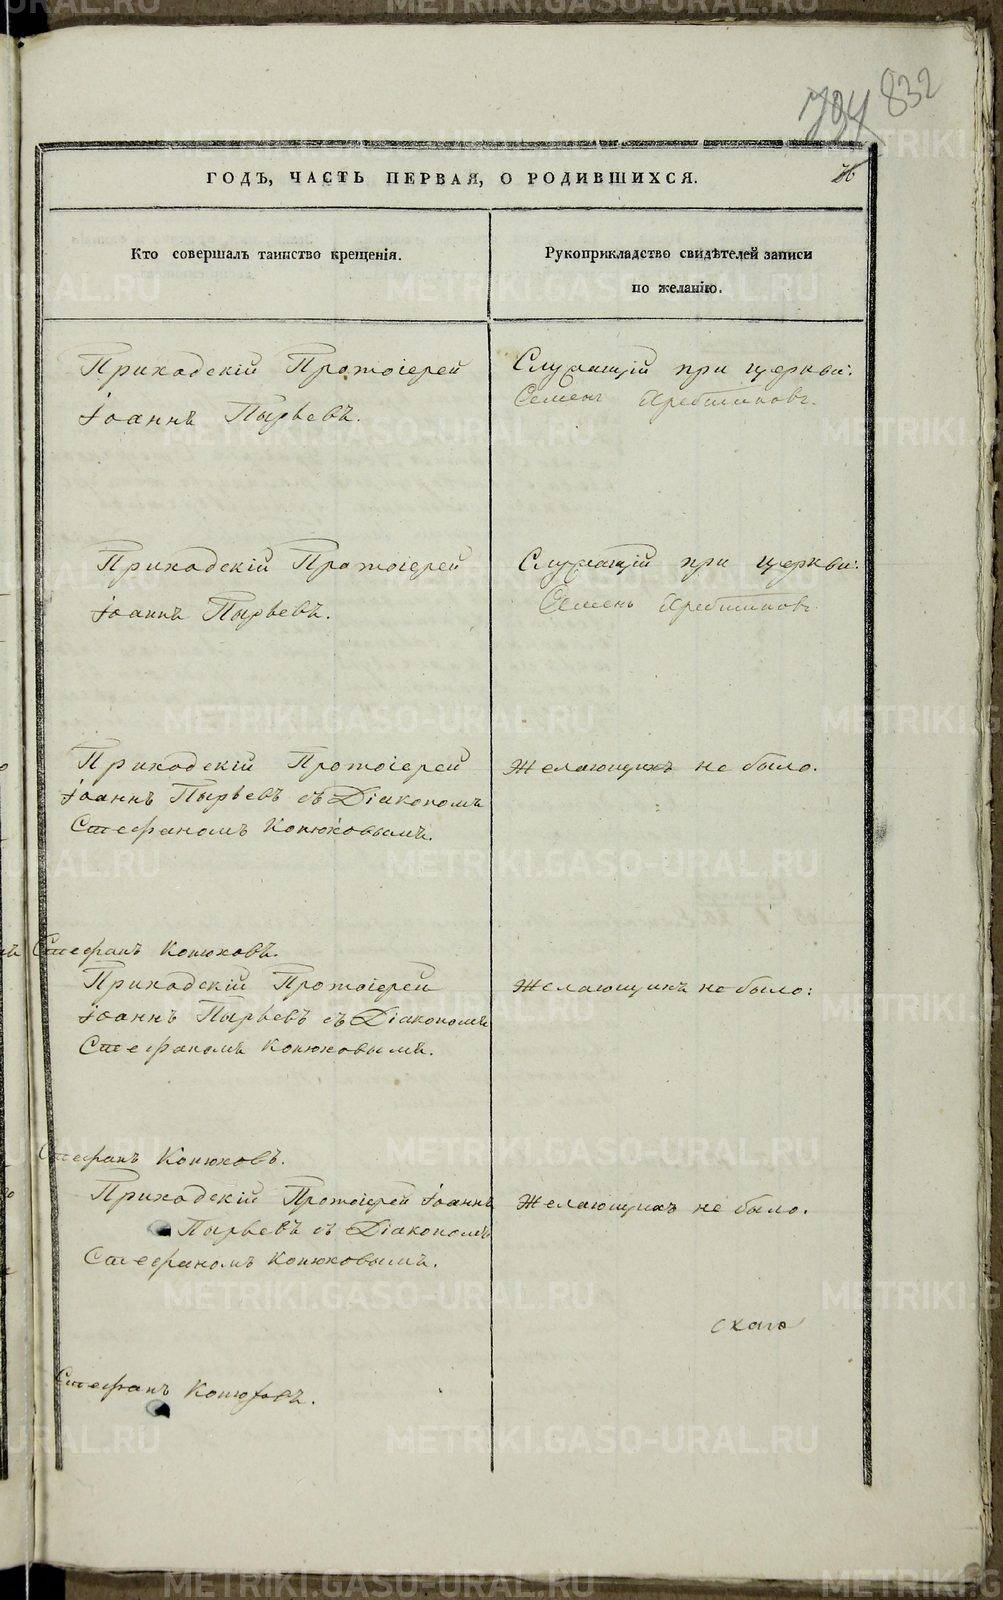 832
794
ГОДЪ, ЧАСТЬ ПЕРВАЯ, О РОДИВШИХСЯ.
Кто совершалъ таинство крещенія.
Рукоприкладство свидѣтелей записи
по желанію.
Приходскій Протоіерей
Іоаннъ Пырьевъ.
Служащій при церкви:
Семенъ
Приходскій Протоіерей
Іоаннъ Пырьевъ.
Служащій при церкви:
Семенъ
Приходскій Протоіерей
Іоаннъ Пырьевъ съ Діакономъ
Стефаномъ Конюховымъ.
Желающихъ не было.
Стефанъ Конюховъ.
Приходскій Протоіерей
Іоаннъ Пырьевъ съ Діакономъ
Стефаномъ Конюховымъ.
Желающихъ не было:
Стефанъ Конюховъ.
Приходскій Протоіерей Іоаннъ
Пырьевъ съ Діакономъ
Стефаномъ Конюховымъ.
Желающихъ не было.
скаго
Стефанъ Конюховъ.
METRIKI.GASO-URAL.RU